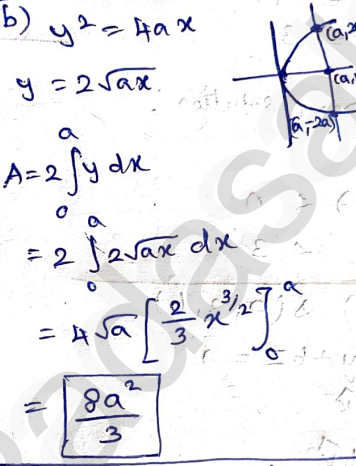 b) y² = 4ax
y = 2√ax
(a,
(a,
(a,-2a)
A = 2 ∫₀ᵃ y dx
= 2 ∫₀ᵃ 2√ax dx
= 4√a [2/3 x^(3/2)]₀ᵃ
= 8a²/3